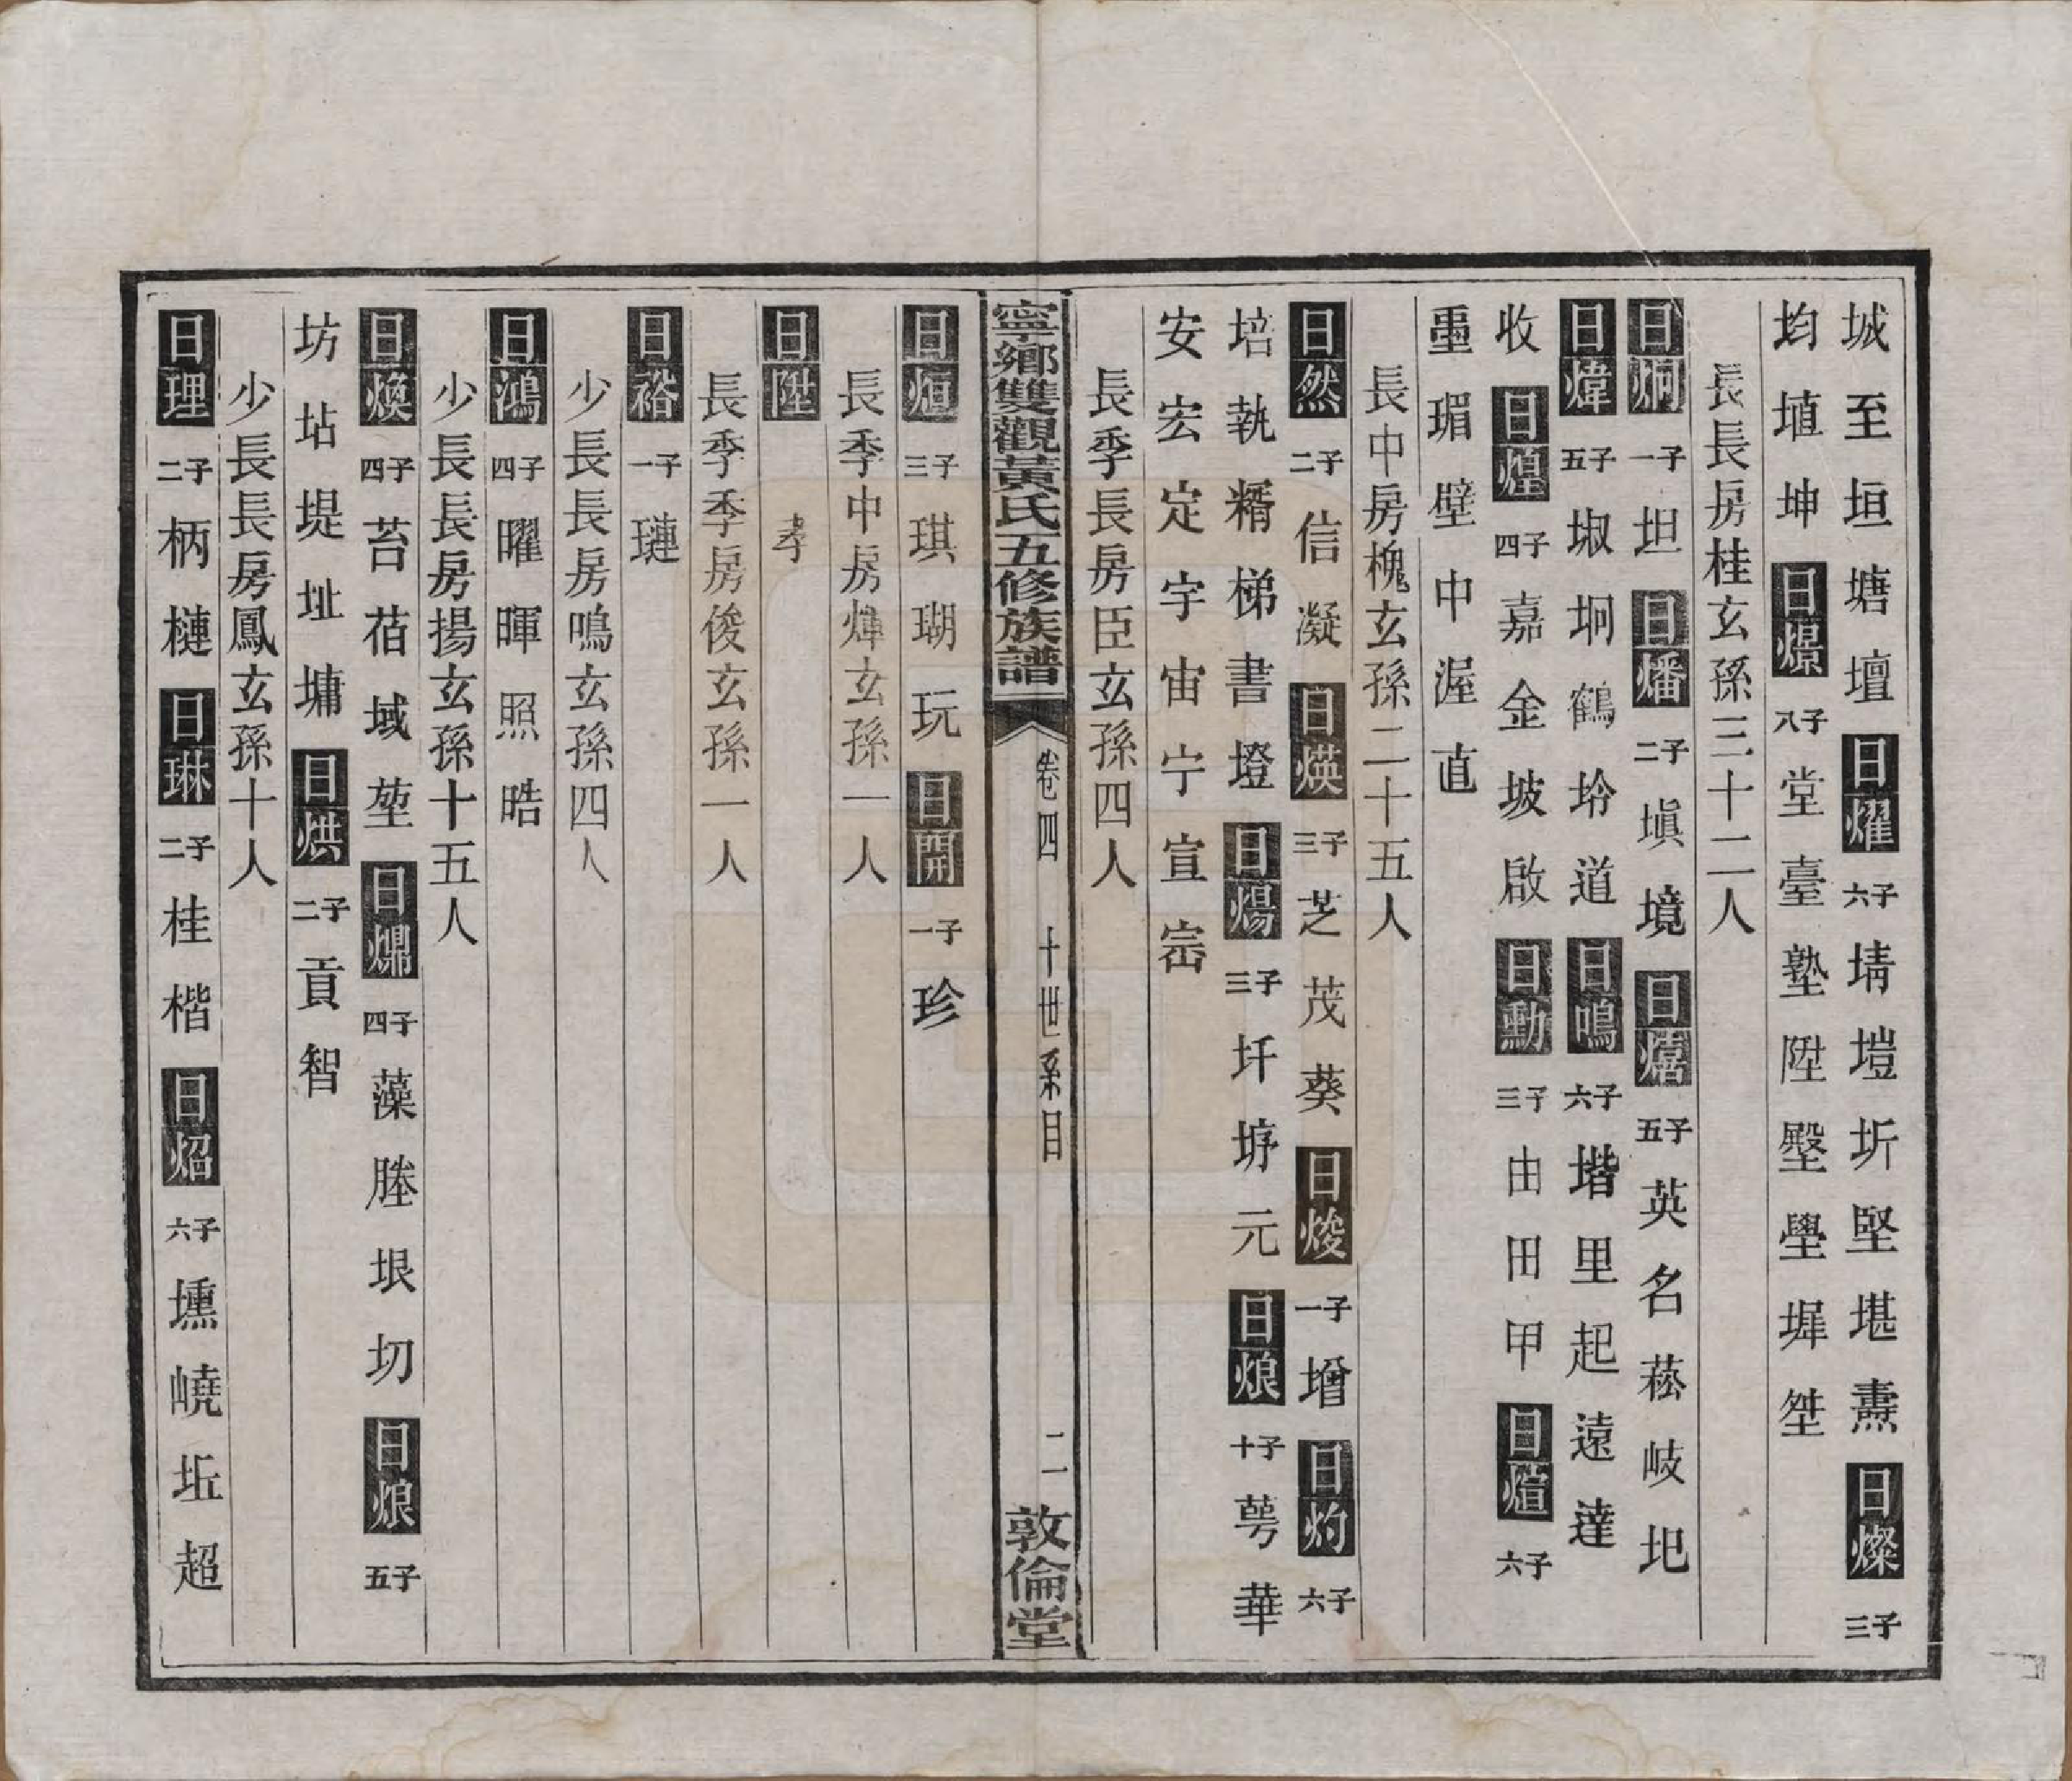 城至垣塘壇日燿六子堉塏圻堅堪燾日燦三子
均埴坤日憬八子堂臺塾陞墾壆墀桀
長長房桂玄孫三十二人
日炯一子坦日燔二子塡境日熺五子英名菘岐圯
日煒五子埱坰鶴坽道日鳴六子堦里起遠達
收日煌四子嘉金坡啟日勳三子由田甲日煊六子
重瑂壁中渥直
長中房槐玄孫二十五人
日然二子信凝日煐三子芝茂葵日焌一子增日灼六子
培執糈梯書墱日煬三子圩垿元日烺十子萼華
安宏定宇宙宁宣嵓
長季長房臣玄孫四人
寧鄉雙觀黃氏五修族譜 卷四 十世系目 二 敦倫堂
日烜三子琪瑚玩日開一子珍
長季中房煒玄孫一人
日陞 孝
長季季房俊玄孫一人
日裕一子璉
少長長房鳴玄孫四人
日鴻四子曜暉照晧
少長長房揚玄孫十五人
日煥四子苔萿域堃日㷸四子藻塍垠切日烺五子
坊坫堤址墉日烘二子貢智
少長長房鳳玄孫十人
日理二子柄槤日琳二子桂楷日炤六子壎嶢坵超